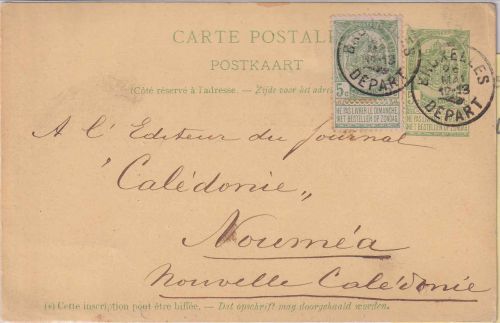 CARTE POSTALE
POSTKAART
(Côté réservé à l'adresse. — Zijde voor het adres
5c
NE PAS LIVRER LE DIMANCHE
NIET BESTELLEN OP ZONDAG
BRUXELLES
MAI
12-13
DÉPART
A l'Editeur du Journal
"Calédonie"
Nouméa
Nouvelle Calédonie
(*) Cette inscription peut être biffée. — Dat opschrift mag doorgehaald worden.